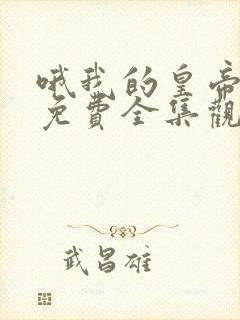 哦我的皇帝
免費全集觀
武昌雄